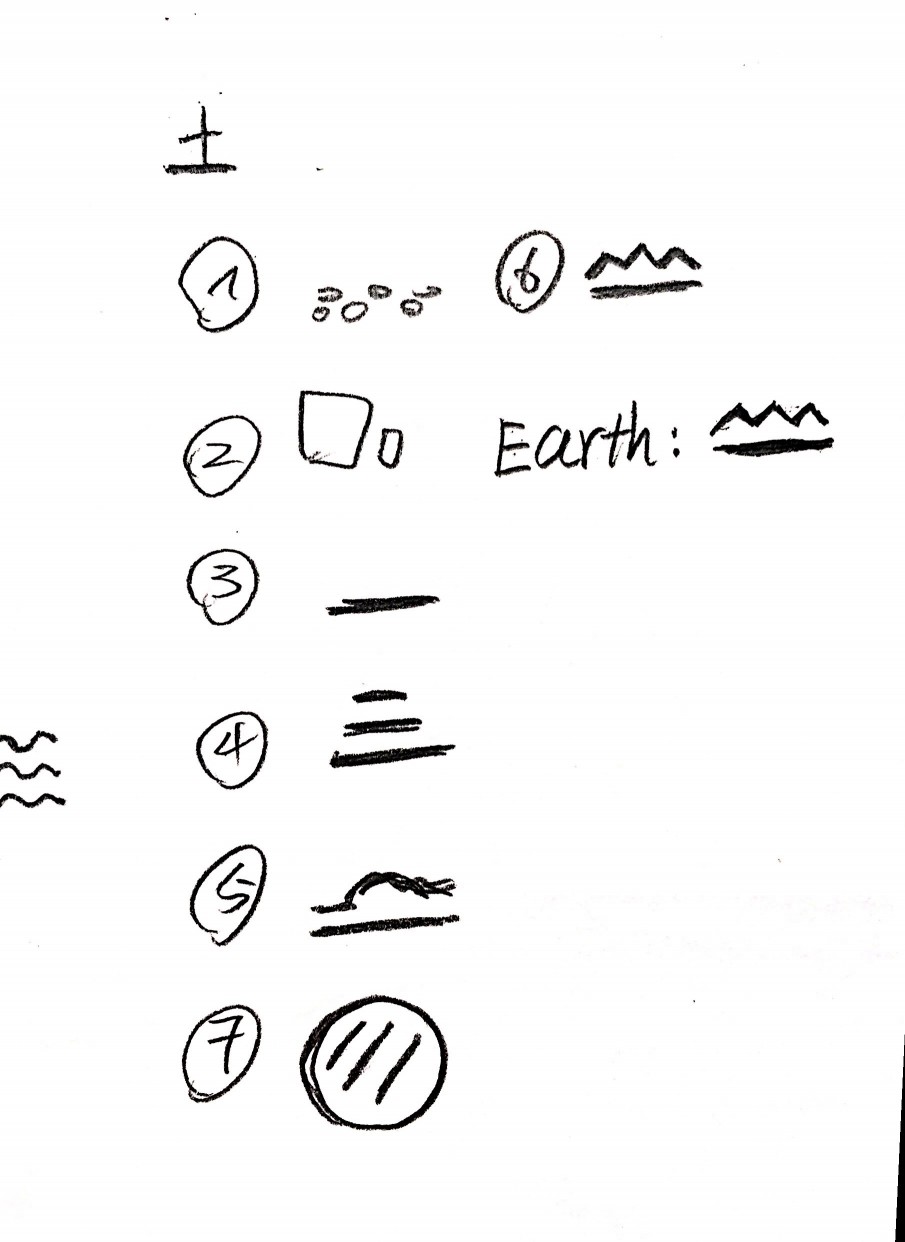 土
1
6
2
Earth:
3
4
5
7